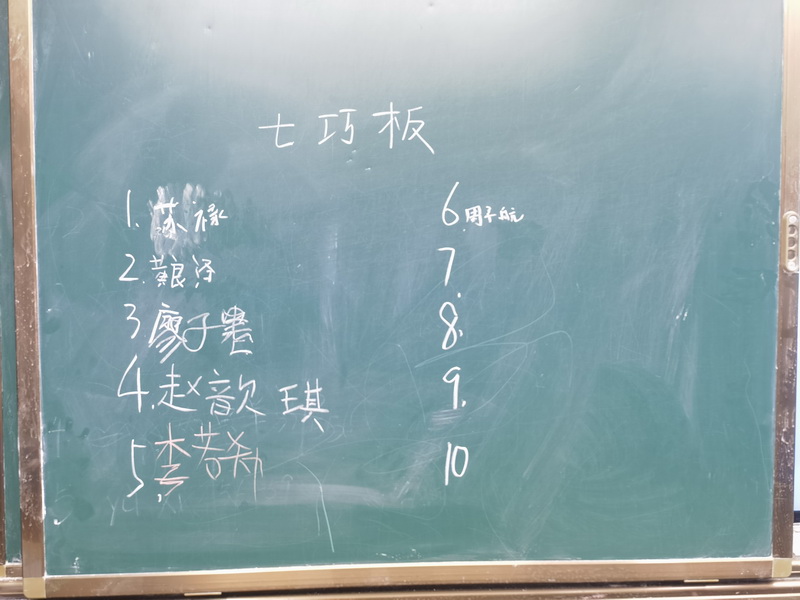 七巧板
1. 禄
2.
3 廖子
4. 赵歆琪
5 李若
6 周子航
7
8.
9.
10